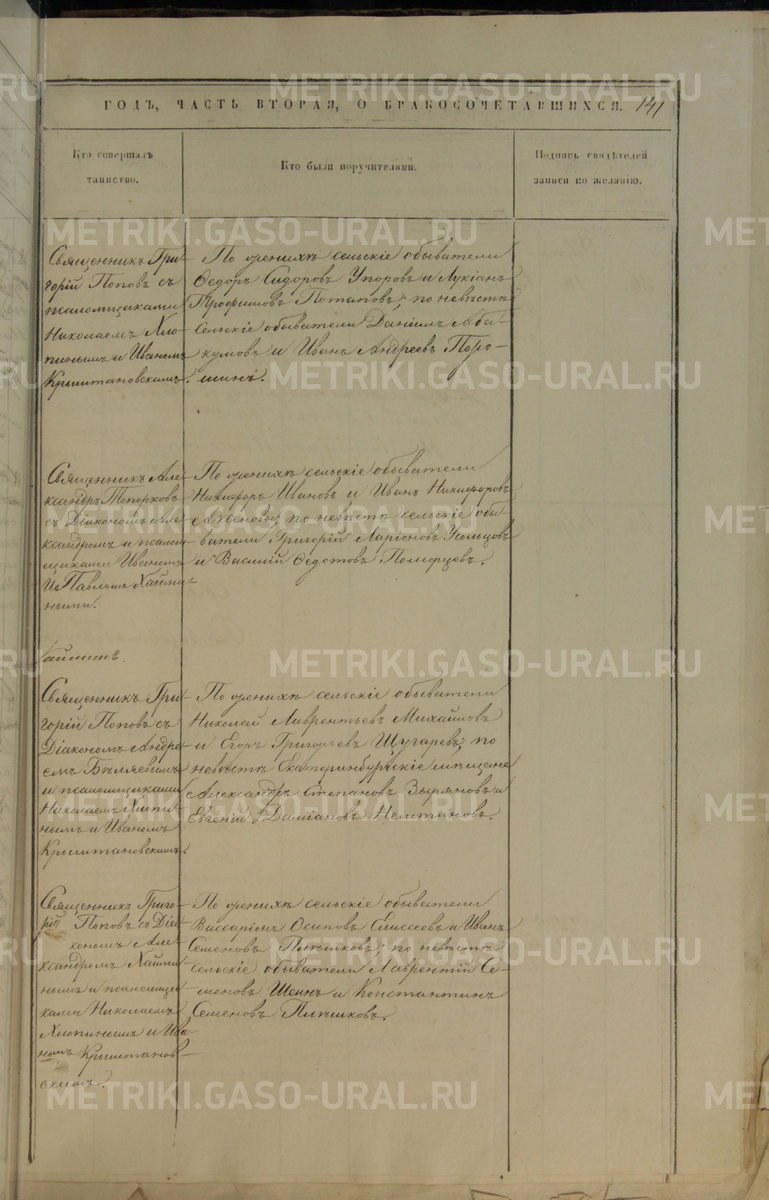 ГОДЪ, ЧАСТЬ ВТОРАЯ, О БРАКОСОЧЕТАВШИХСЯ. 141
Кто совершалъ
таинство.
Кто были поручителями.
Подпись свидѣтелей
записи по желанію.
Священникъ Гри-
горій Поповъ съ
псаломщиками
Николаемъ Хло-
пинымъ и Иваномъ
Крыштановскимъ.
По женихѣ сельскіе обыватели
Ѳедоръ Сидоровъ Упоровъ и Лукіанъ
Трофимовъ Потаповъ; по невѣстѣ
сельскіе обыватели Даніилъ Аба-
кумовъ и Иванъ Андреевъ Поро-
шинъ.
Священникъ Але-
ксандръ Топорковъ
съ Діакономъ Але-
ксандромъ и псалом-
щиками Иваномъ
и Павломъ Хайми-
ными.
Хайминъ.
По женихѣ сельскіе обыватели
Никифоръ Ивановъ и Иванъ Никифоровъ
Аксеновы; по невѣстѣ сельскіе обы-
ватели Григорій Ларіоновъ Усольцовъ
и Василій Ѳедотовъ Поморцевъ.
Священникъ Гри-
горій Поповъ съ
Діакономъ Андре-
емъ Бѣляевымъ
и псаломщиками
Николаемъ Хлопи-
нымъ и Иваномъ
Крыштановскимъ.
По женихѣ сельскіе обыватели
Николай Лаврентьевъ Михайловъ
и Егоръ Григорьевъ Щугаревъ; по
невѣстѣ Екатеринбургскіе мѣщане
Александръ Степановъ Зыряновъ и
Евгеній Даміановъ
Священникъ Григо-
рій Поповъ съ Діа-
кономъ Але-
ксандромъ Хайми-
нымъ и псаломщи-
ками Николаемъ
Хлопинымъ и Ива-
номъ Крыштанов-
скимъ.
По женихѣ сельскіе обыватели
Виссаріонъ Осиповъ Елисеевъ и Иванъ
Семеновъ Плѣшковъ; по невѣстѣ
сельскіе обыватели Лаврентій Се-
меновъ Шеинъ и Константинъ
Семеновъ Плѣшковъ.
METRIKI.GASO-URAL.RU